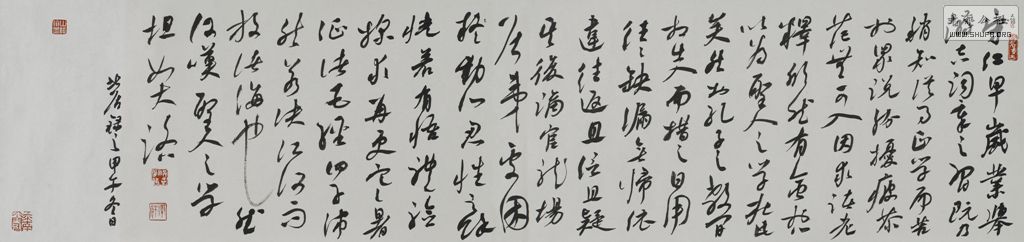 守仁早歲業舉
溺志詞章之習既乃
稍知從事正學而苦
於眾說紛擾疲苶
茫無可入因求諸老
釋欣然有會於心
以為聖人之學在此
矣然於孔子之教間
相出入而措之日用
往往缺漏無歸依
違往返且信且疑
其後謫官龍場
居夷處困
動心忍性之餘
恍若有悟體驗
探求再更寒暑
證諸五經四子沛
然若決江河而
放諸海也然
後嘆聖人之學
坦如大路
甲午冬日